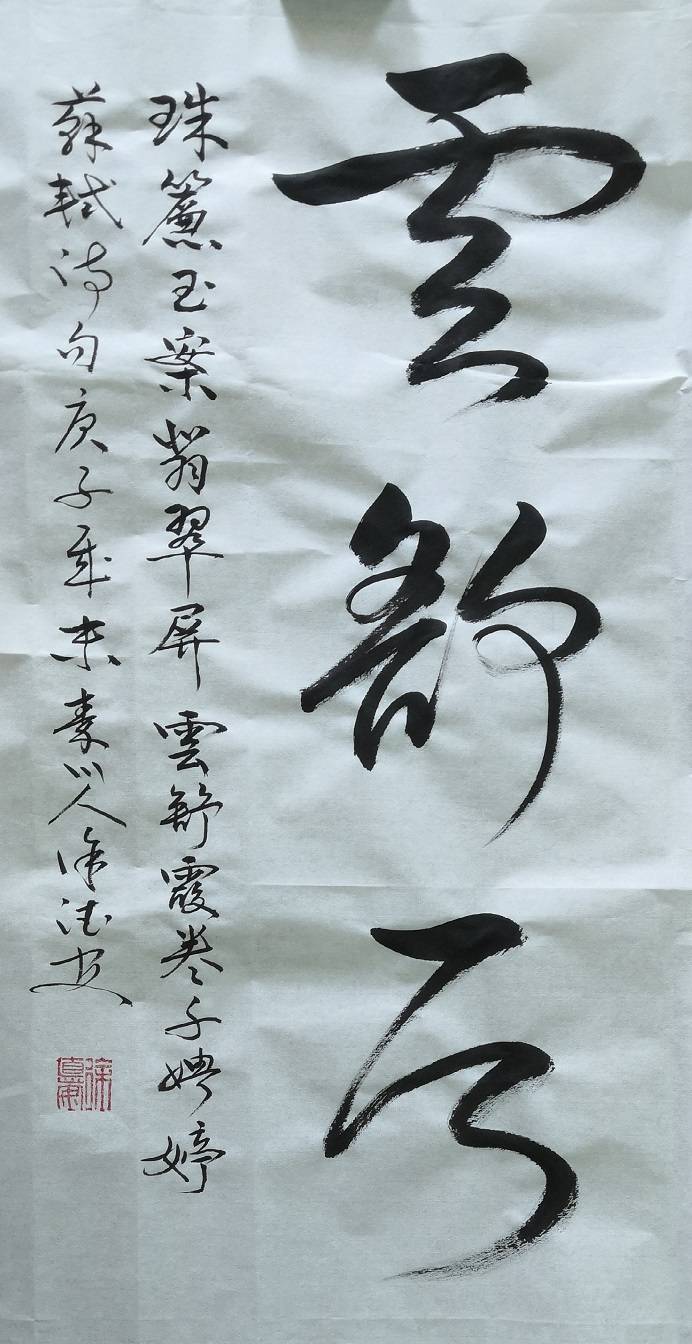 雲舒
珠簾玉案翡翠屏 雲舒霞卷千娉婷
蘇軾詩句庚子歲末秦川人徐德安